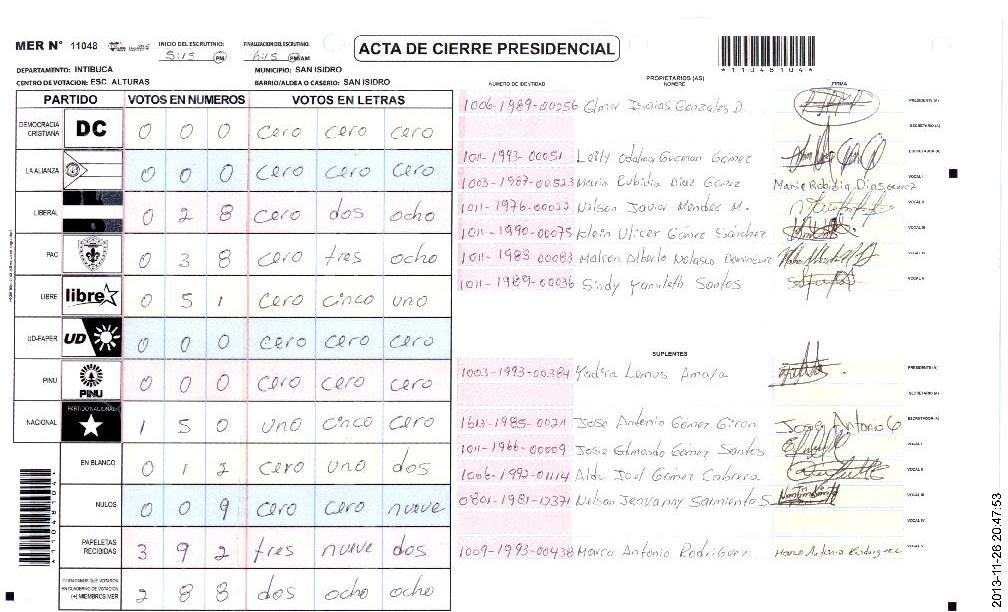 MER N° 11048
INICIO DEL ESCRUTINIO: 5:15 PM
FINALIZACION DEL ESCRUTINIO: 6:15 PM/AM
ACTA DE CIERRE PRESIDENCIAL
*11048104*
DEPARTAMENTO: INTIBUCA
MUNICIPIO: SAN ISIDRO
CENTRO DE VOTACION: ESC. ALTURAS
BARRIO/ALDEA O CASERIO: SAN ISIDRO
PARTIDO VOTOS EN NUMEROS VOTOS EN LETRAS
DEMOCRACIA CRISTIANA DC 0 0 0 cero cero cero
LA ALIANZA 0 0 0 cero cero cero
LIBERAL 0 2 8 cero dos ocho
PAC 0 3 8 cero tres ocho
LIBRE libre 0 5 1 cero cinco uno
UD-FAPER UD 0 0 0 cero cero cero
PINU PINU 0 0 0 cero cero cero
NACIONAL PARTIDO NACIONAL 1 5 0 uno cinco cero
EN BLANCO 0 1 2 cero uno dos
NULOS 0 0 9 cero cero nueve
PAPELETAS RECIBIDAS 3 9 2 tres nueve dos
CIUDADANOS QUE VOTARON EN CUADERNO DE VOTACION (+) MIEMBROS MER 2 8 8 dos ocho ocho
NUMERO DE IDENTIDAD PROPIETARIOS (AS) NOMBRE FIRMA
1006-1989-00056 Elmer Isaias Gonzales D. PRESIDENTE (A)
SECRETARIO (A)
1011-1993-00051 Leily Odalma Guzman Gomez ESCRUTADOR (A)
1003-1987-00523 Maria Rubidia Diaz Gomez VOCAL I
1011-1976-00033 Nelson Javier Mendez M. VOCAL II
1011-1990-00075 Klein Ulicer Gómez Sánchez VOCAL III
1011-1988-00083 Maicon Alberto Nolasco Dominguez VOCAL IV
1011-1989-00036 Sindy Yamileth Santos VOCAL V
SUPLENTES
1003-1993-00384 Yadira Lemus Amaya PRESIDENTE (A)
SECRETARIO (A)
1613-1985-00211 Jose Antonio Gomez Giron Jose Antonio G ESCRUTADOR (A)
1011-1966-00009 Jose Edmundo Gómez Santos VOCAL I
1006-1992-01114 Aldo Joel Gómez Cabrera VOCAL II
0801-1981-12371 Nelson Jeovanny Sarmiento S VOCAL III
VOCAL IV
1009-1993-00438 Marco Antonio Rodriguez Marco Antonio Rodriguez VOCAL V
2013-11-26 20:47:53